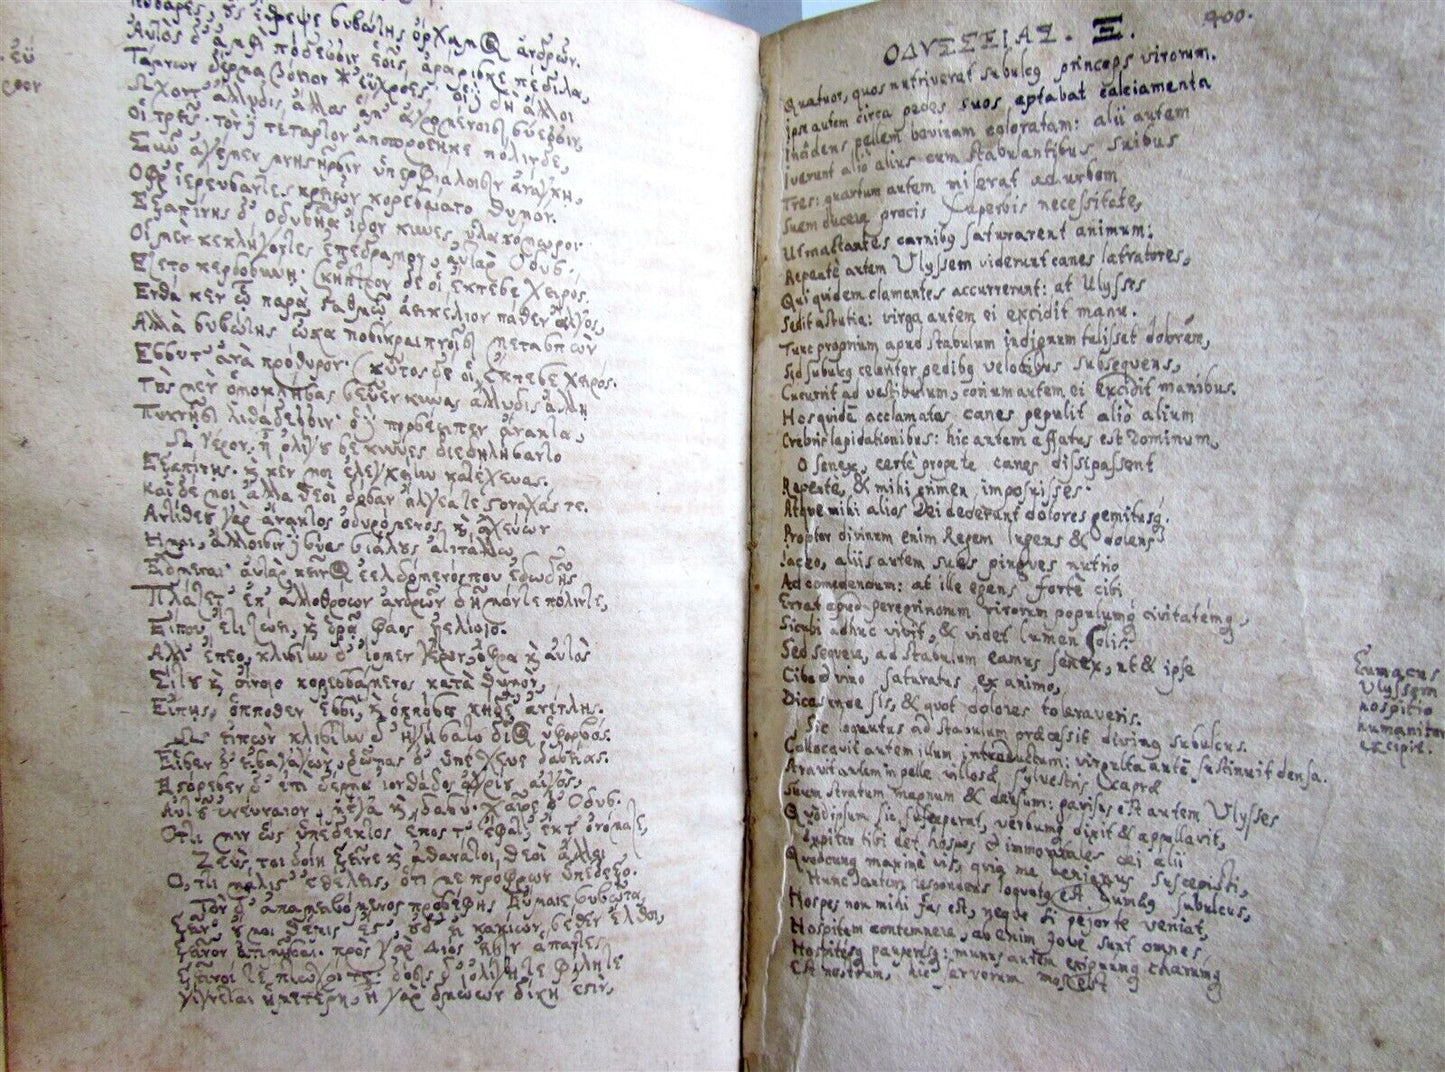 τέσσαρες, οὓς ἔθρεψε συβώτης ὄρχαμος ἀνδρῶν.
Αὐτὸς δ' ἀμφὶ πόδεσσιν ἑοῖς ἀράρισκε πέδιλα,
Τάμνων δέρμα βόειον ἐϋχροές, οἱ δὴ ἄλλοι
Ὤχοντ' ἄλλυδις ἄλλος ἅμ' ἀγρομένοισι σύεσσιν,
Οἱ τρεῖς· τὸν τέταρτον ἀποπροέηκε πόλινδε,
Σῦν ἀγέμεν μνηστῆρσιν ὑπερφιάλοισιν ἀνάγκῃ,
Ὄφρ' ἱερεύσαντες κρειῶν κορεσαίατο θυμόν.
Ἐξαπίνης δ' Ὀδυσῆα ἴδον κύνες ὑλακόμωροι
Οἱ μὲν κεκλήγοντες ἐπέδραμον, αὐτὰρ Ὀδυσ.
Ἕζετο κερδοσύνῃ· σκῆπτρον δέ οἱ ἔκπεσε χειρός.
Ἔνθα κεν ᾧ παρὰ σταθμῷ ἀεικέλιον πάθεν ἄλγος,
Ἀλλὰ συβώτης ὦκα ποσὶ κραιπνοῖσι μετασπὼν
Ἔσσυτ' ἀνὰ πρόθυρον· σκῦτος δέ οἱ ἔκπεσε χειρός.
Τοὺς μὲν ὁμοκλήσας σεῦεν κύνας ἄλλυδις ἄλλῃ
Πυκνῇσι λιθάδεσσιν· ὁ προσέειπεν ἄνακτα,
Ὦ γέρον, ἦ ὀλίγου σε κύνες διεδηλήσαντο
Ἐξαπίνης· ϗ κέν μοι ἐλεγχείην κατέχευας.
Καὶ δέ μοι ἄλλα θεοὶ δόσαν ἄλγεά τε στοναχάς τε.
Ἀντιθέου γὰρ ἄνακτος ὀδυρόμενος, ϗ ἀχεύων
Ἧμαι, ἄλλοισιν σύας σιάλους ἀτιτάλλω
Ἔδμεναι· αὐτὰρ κεῖνος ἐελδόμενός που ἐδωδῆς
Πλάζετ' ἐπ' ἀλλοθρόων ἀνδρῶν δῆμόν τε πόλιν τε,
Εἴ που ἔτι ζώει, ϗ ὁρᾷ φάος ἠελίοιο.
Ἀλλ' ἕπεο, κλισίην δ' ἴομεν γέρον, ὄφρα ϗ αὐτὸς
Σίτου ϗ οἴνοιο κορεσσάμενος κατὰ θυμὸν,
Εἴπῃς, ὁππόθεν ἐσσὶ, ϗ ὁππόσα κήδε' ἀνέτλης.
Ὣς εἰπὼν κλισίην δ' ἡγήσατο δῖος ὑφορβός.
Εἷσεν δ' εἰσαγαγὼν, ῥῶπας δ' ὑπέχευε δασείας.
Ἐστόρεσεν δ' ἐπὶ δέρμα ἰονθάδος ἀγρίου αἰγὸς,
Αὐτοῦ ἐνεύναιον, μέγα ϗ δασύ· χαῖρε δ' Ὀδυσ.
Ὅττι μιν ὣς ὑπέδεκτο, ἔπος τ' ἔφατ', ἔκ τ' ὀνόμαζε,
Ζεύς τοι δοίη ξεῖνε ϗ ἀθάνατοι, θεοὶ ἄλλοι
Ὅ,ττι μάλιστ' ἐθέλεις, ὅτι με πρόφρων ὑπέδεξο.
Τὸν δ' ἀπαμειβόμενος προσέφης Εὔμαιε συβῶτα,
Ξεῖν' οὔ μοι θέμις ἔστ', οὐδ' εἰ κακίων σέθεν ἔλθοι,
Ξεῖνον ἀτιμῆσαι· πρὸς γὰρ Διός εἰσιν ἅπαντες
Ξεῖνοί τε πτωχοί τε. δόσις δ' ὀλίγη τε φίλη τε
Γίγνεται ἡμετέρη, ἡ γὰρ δμώων δίκη ἐστὶν,
ΟΔΥΣΣΕΙΑΣ. Ξ. 400.
Quatuor, quos nutriverat subulcus princeps virorum.
Ipse autem circa pedes suos aptabat calciamenta
Incidens pellem bovinam coloratam: alii autem
Iverunt alio alius cum stabulantibus suibus
Tres: quartum autem miserat ad urbem
Suem ducere procis superbis necessitate,
Ut mactantes carnibus saturarent animum:
Repente autem Ulyssem viderunt canes latratores,
Qui quidem clamantes accurrerunt: at Ulysses
Sedit astutia: virga autem ei excidit manu.
Tunc proprium apud stabulum indignum tulisset dolorem,
Sed subulcus celeriter pedibus velocibus subsequens,
Cucurrit ad vestibulum, corium autem ei excidit manibus.
Hos quidem acclamatos canes pepulit alio alium
Crebris lapidationibus: hic autem affatus est dominum,
O senex, certè propè te canes dissipassent
Repente, & mihi crimen imposuisses.
Atque mihi alios dei dederunt dolores gemitusque.
Propter divinum enim Regem lugens & dolens
Jaceo, aliis autem sues pingues nutrio
Ad comedendum: at ille egens fortè cibi
Errat apud peregrinorum virorum populumque civitatemque,
Sicubi adhuc vivit, & videt lumen Solis.
Sed sequere, ad stabulum eamus senex, ut & ipse
Cibo & vino saturatus ex animo,
Dicas unde sis, & quot dolores toleraveris.
Sic loquutus ad stabulum præcessit divinus subulcus.
Collocavit autem illum introductum: virgulta autē sustinuit densa.
Stravit autem pelle villosæ sylvestris Capræ
Suum stratum magnum & densum: gavisus est autem Ulysses
Quòd ipsum sic susceperat, verbumque dixit & appellavit,
Jupiter tibi det hospes & immortales dei alii
Quodcunque maxime vis, quia me benignus suscepisti,
Hunc autem respondens loquutus est Eumæus subulcus,
Hospes non mihi fas est, neque si pejor te veniat,
Hospitem contemnere, ab enim Jove sunt omnes
Hospitesque pauperesque: munus autem exiguumque charumque
Est nostrum, hic servorum mos est
Eumaeus
Ulyssem
hospitio
humaniter
excipit.